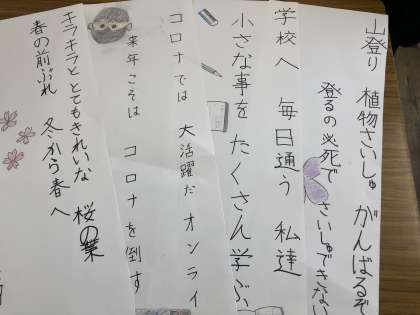 山登り 植物さいしゅ がんばるぞ
登るの必死で さいしゅできない
学校へ 毎日通う 私達
小さな事を たくさん学ぶ
コロナでは 大活躍だ オンライ
来年こそは コロナを倒す
キラキラと とてもきれいな 桜の葉
春の前ぶれ 冬から春へ